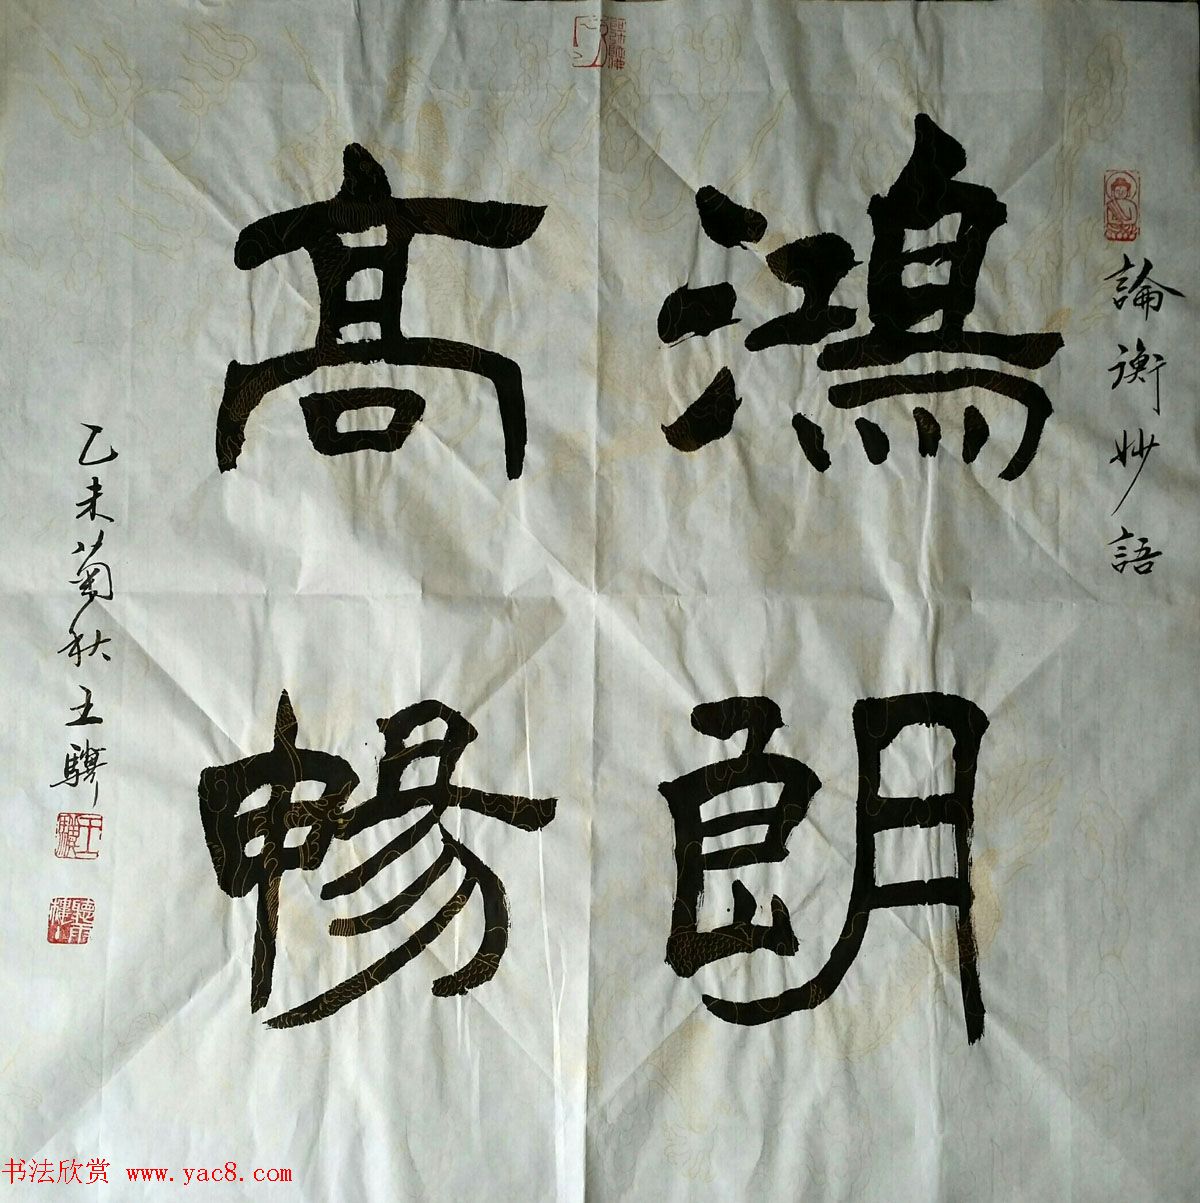 論衡妙語
鴻朗
高暢
乙未菊秋王驥
书法欣赏 www.yac8.com